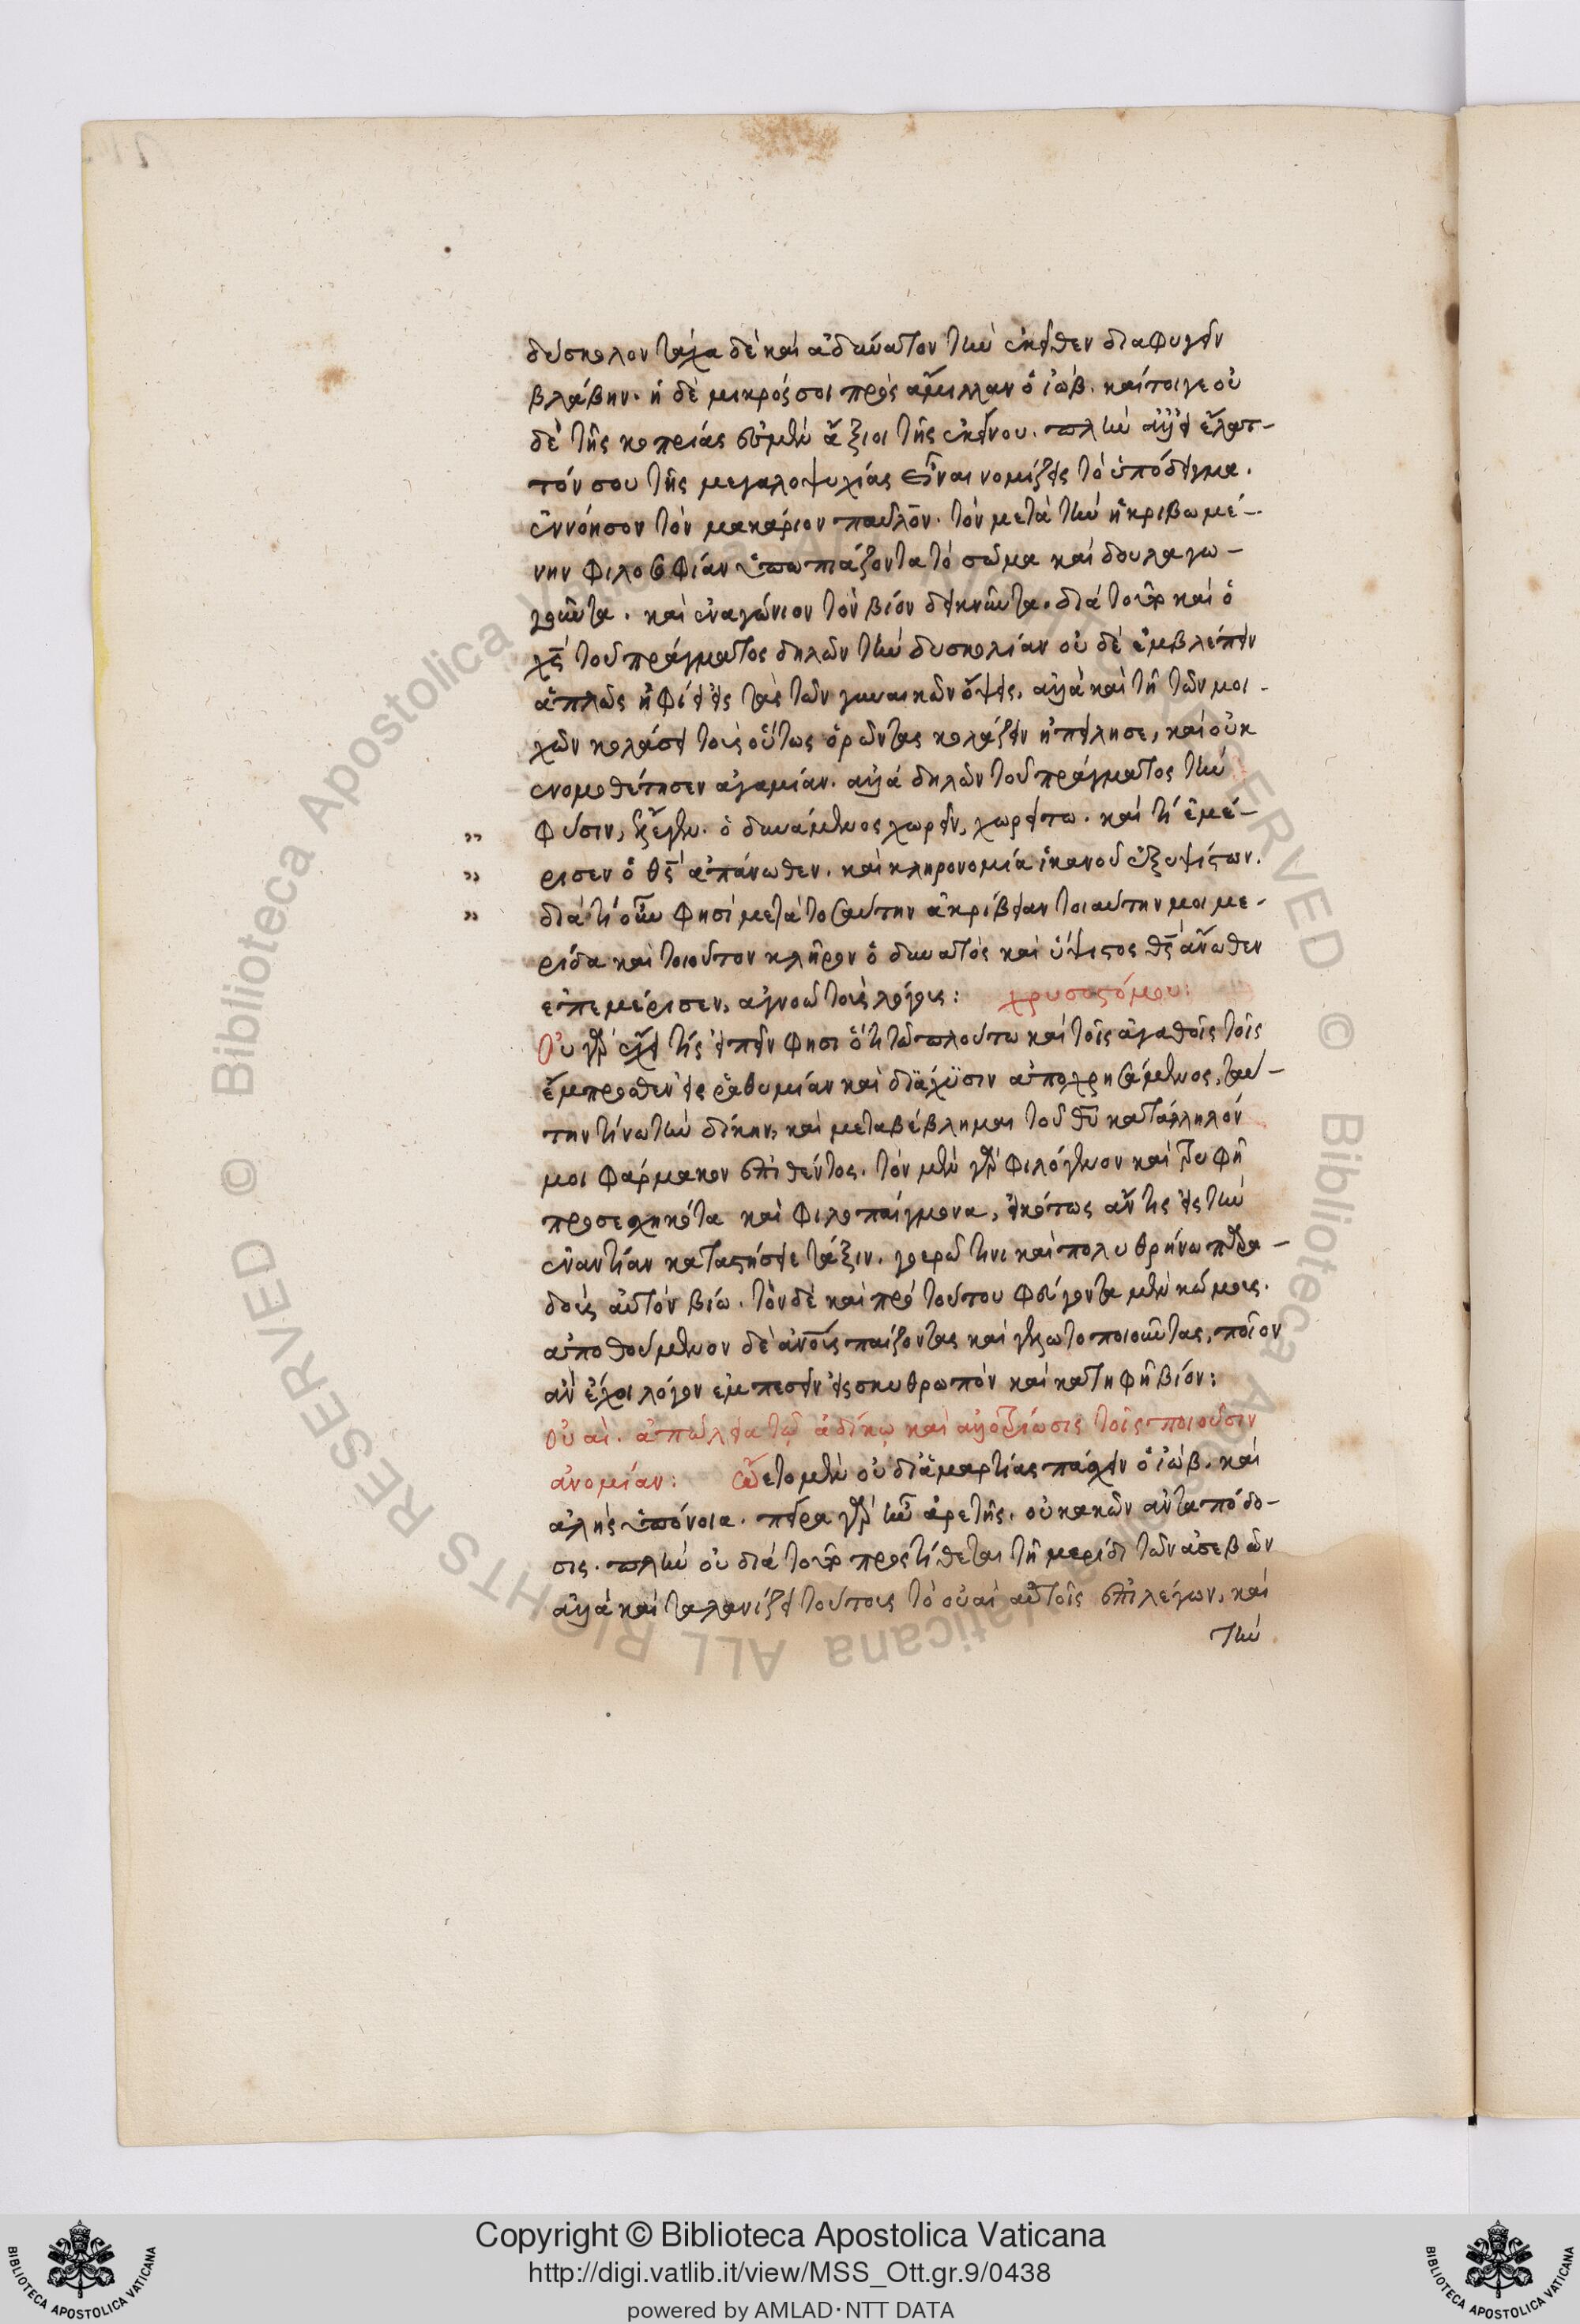 δύσκολον τάχα δὲ καὶ ἀδύνατον τὴν ἐκεῖθεν διαφυγεῖν
βλάβην. ἢ δὲ μικρός σοι πρὸς ἅμιλλαν ὁ ἰώβ. καίτοιγε οὐ
δὲ τῆς κοπρίας ἐσμὲν ἄξιοι τῆς ἐκείνου. πλὴν ἀλλ' εἰ ἔλατ-
τόν σου τῆς μεγαλοψυχίας εἶναι νομίζεις τὸ ὑπόδειγμα.
ἐννόησον τὸν μακάριον παῦλον. τὸν μετὰ τὴν ἠκριβωμέ-
νην φιλοσοφίαν ὑπωπιάζοντα τὸ σῶμα καὶ δουλαγω-
γοῦντα. καὶ ἐναγώνιον τὸν βίον δεικνῦντα. διὰ τοῦτο καὶ ὁ
χς τοῦ πράγματος δηλῶν τὴν δυσκολίαν οὐ δὲ ἐμβλέπειν
ἁπλῶς ἠφίει εἰς τὰς τῶν γυναικῶν ὄψεις. ἀλλὰ καὶ τῆ τῶν μοι-
χῶν κολάσει τοὺς οὕτως ὁρῶντας κολάζειν ἠπείλησε, καὶ οὐκ
ἐνομοθέτησεν ἀγαμίαν. ἀλλὰ δηλῶν τοῦ πράγματος τὴν
" φύσιν, ἔλεγεν. ὁ δυνάμενος χωρεῖν, χωρείτω. καὶ τί ἐμέ-
" ρισεν ὁ θς ἀπάνωθεν. καὶ κληρονομία ἱκανοῦ ἐξ ὑψίστων.
" διὰ τί οὖν φησὶ μετὰ τοσαύτην ἀκρίβειαν τοιαύτην μοι με-
ρίδα καὶ τοιοῦτον κλῆρον ὁ δυνατὸς καὶ ὕψιστος θς ἄνωθεν
ἐπεμέρισεν, ἀγνοῶ τοὺς λόγους: χρυσοστόμου:
Οὐ γὰρ ἔχει τίς εἰπεῖν φησι ὅτι τῶ πλούτω καὶ τοῖς ἀγαθοῖς τοῖς
ἔμπροσθεν εἰς ῥαθυμίαν καὶ διάχυσιν ἀποχρησάμενος, ταύ-
την τίνω τὴν δίκην, καὶ μεταβέβλημαι τοῦ θυ κατάλληλόν
μοι φάρμακον ἐπιθέντος. τὸν μὲν γὰρ φιλόγελων καὶ τρυφῆ
προσεσχηκότα καὶ φιλοπαίγμονα, εἰκότως ἄν τις εἰς τὴν
ἐναντίαν καταστήσειε τάξιν. γοερῶ τινι καὶ πολυθρήνω παρα-
δοὺς αὐτὸν βίω. τὸν δὲ καὶ πρὸ τούτου φεύγοντα μὲν κώμους.
ἀποθούμενον δὲ ἀνους παίζοντας καὶ γέλωτο ποιοῦντας, ποῖον
ἂν ἔχοι λόγον ἐμπεσεῖν εἰς σκυθρωπὸν καὶ κατηφῆ βίον:
οὐαὶ. ἀπώλεια τῷ ἀδίκῳ καὶ ἀλλοτρίωσις τοῖς ποιοῦσιν
ἀνομίαν: ὤετο μὲν οὐ δι' ἁμαρτίας πάσχειν ὁ ἰώβ. καὶ
ἀληθὴς ὑπόνοια. πεῖρα γὰρ ἦν ἀρετῆς. οὐ κακῶν ἀνταπόδο-
σις. πλὴν οὐ διὰ τοῦτο προστίθεται τῆ μερίδι τῶν ἀσεβῶν
ἀλλὰ καὶ ταλανίζει τούτους τὸ οὐαὶ αὐτοῖς ἐπιλέγων, καὶ
τὴν
Copyright © Biblioteca Apostolica Vaticana
http://digi.vatlib.it/view/MSS_Ott.gr.9/0438
powered by AMLAD·NTT DATA
BIBLIOTECA APOSTOLICA VATICANA
BIBLIOTECA APOSTOLICA VATICANA
© Biblioteca Apostolica Vaticana ALL RIGHTS RESERVED © Biblioteca Apostolica Vaticana ALL RIGHTS RESERVED